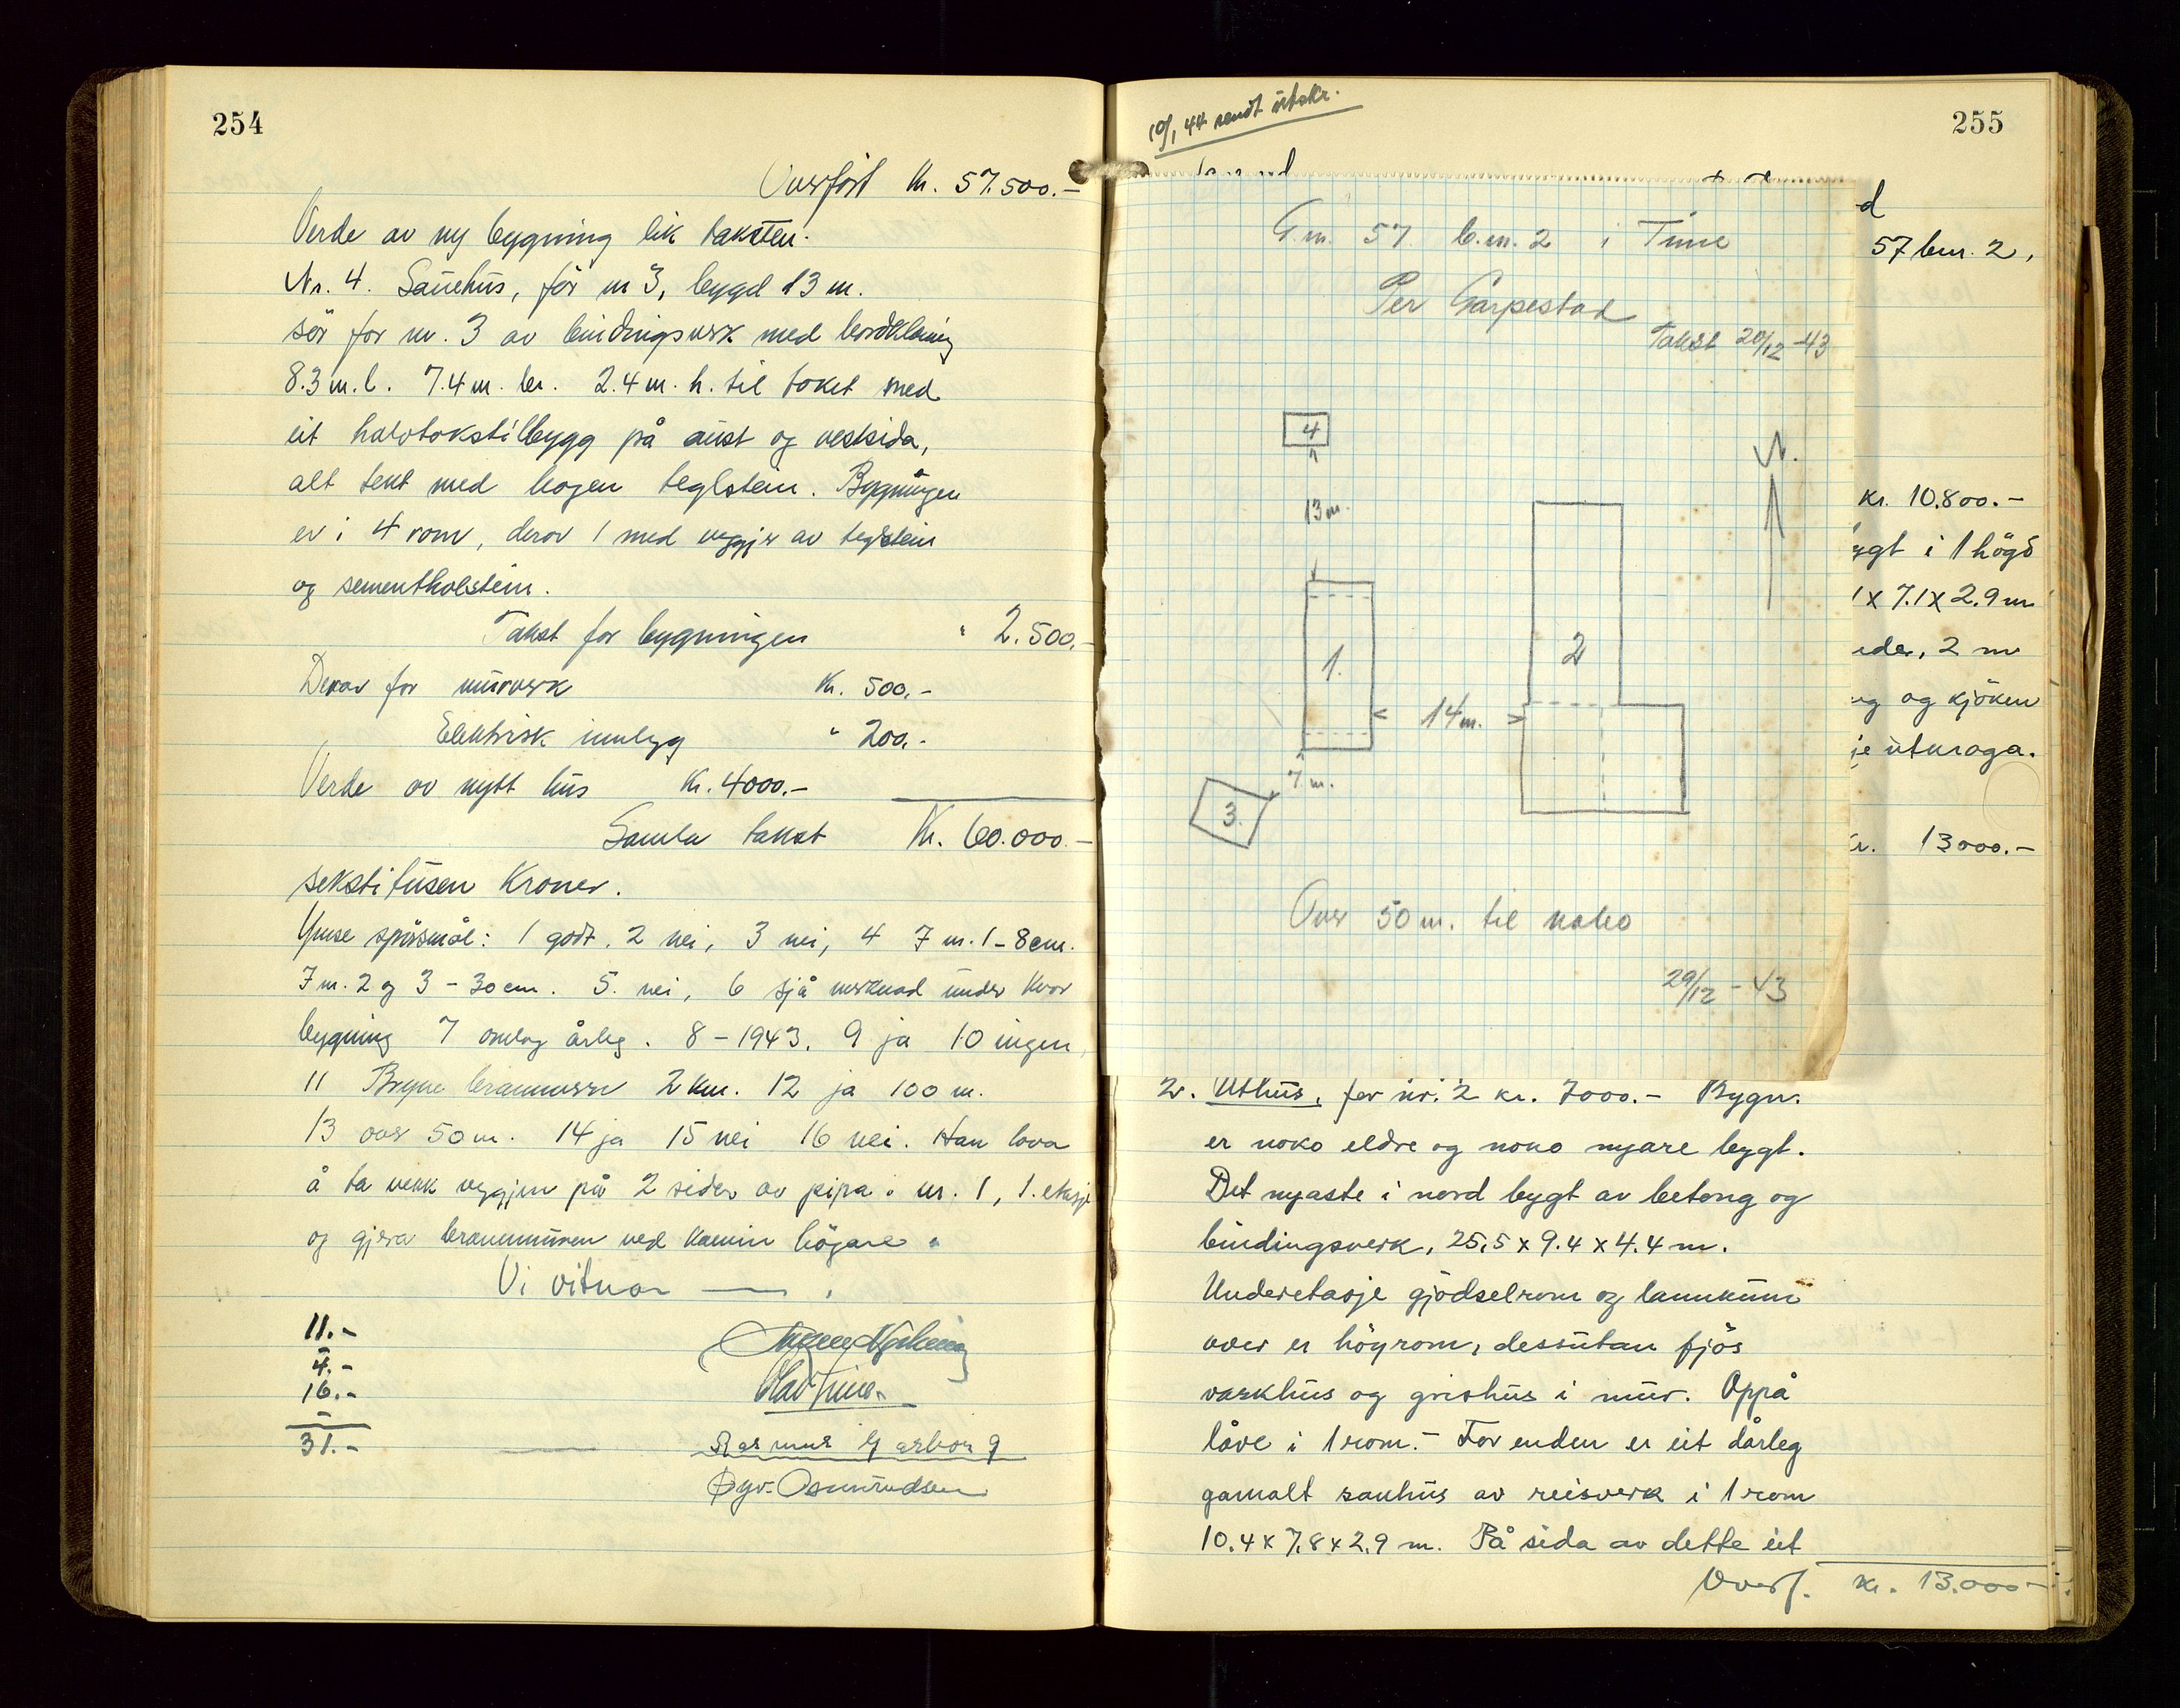 254
Overført Kr. 57.500.-
Verde av ny bygning lik taksten.
Nr. 4. Sauehus, før nr 3, bygd 13 m.
sør for nr. 3 av bindingsverk med bordkledning
8.3 m. l. 7.4 m. br. 2.4 m. h. til taket med
eit halvtakstilbygg på aust og vestsida,
alt tekt med hogen teglstein. Bygningen
er i 4 rom, derav 1 med veggjer av teglstein
og sementholstein.
Takst for bygningen " 2.500.-
Derav for murverk Kr. 500.-
Elektrisk innlegg " 200.-
Verde av nytt hus Kr. 4000.-
Samla takst Kr. 60.000.-
sekstitusen Kroner.
Ymse spørsmål: 1 godt. 2 nei, 3 nei, 4 F nr. 1 - 8 cm.
F nr. 2 og 3 - 30 cm. 5. nei, 6 sjå merknad under kvar
bygning 7 omlag årleg. 8 - 1943. 9 ja 10 ingen
11 Bryne brannvern 2 km. 12 ja 100 m.
13 over 50 m. 14 ja 15 nei 16 nei. Han lova
å ta vekk veggjen på 2 sider av pipa i nr. 1, 1. etasje
og gjera brannmuren ved kamin högare.
Vi vitnar — .
11.-
4.-
16.-
31.-
Olav Time.
Rasmus Garborg
Øyv. Osmundsen
10/1 44 sendt utskr.
255
d
57 bnr. 2,
G.nr. 57 b.nr. 2 i Time
Per Garpestad
Takst 29/12 -43
4
N.
13 m.
1.
2
14 m.
7 m.
3.
Over 50 m. til nabo
29/12 - 43
kr. 10.800.-
ygt i 1 högd
1 x 7.1 x 2.9 m
eder, 2 m
ng og kjöken
je utvraga.
kr. 13000.-
2. Uthus, før nr. 2 kr. 7000.- Bygn.
er noko eldre og noko nyare bygt.
Det nyaste i nord bygt av betong og
bindingsverk, 25,5 x 9.4 x 4.4 m.
Underetasje gjödselrom og lannkum
over er höyrom, dessutan fjös
vaskhus og grishus i mur. Oppå
låve i 1 rom. - For enden er eit dårleg
gamalt sauhus av reisverk i 1 rom
10.4 x 7.8 x 2.9 m. På sida av dette eit
Overf. kr. 13.000.-